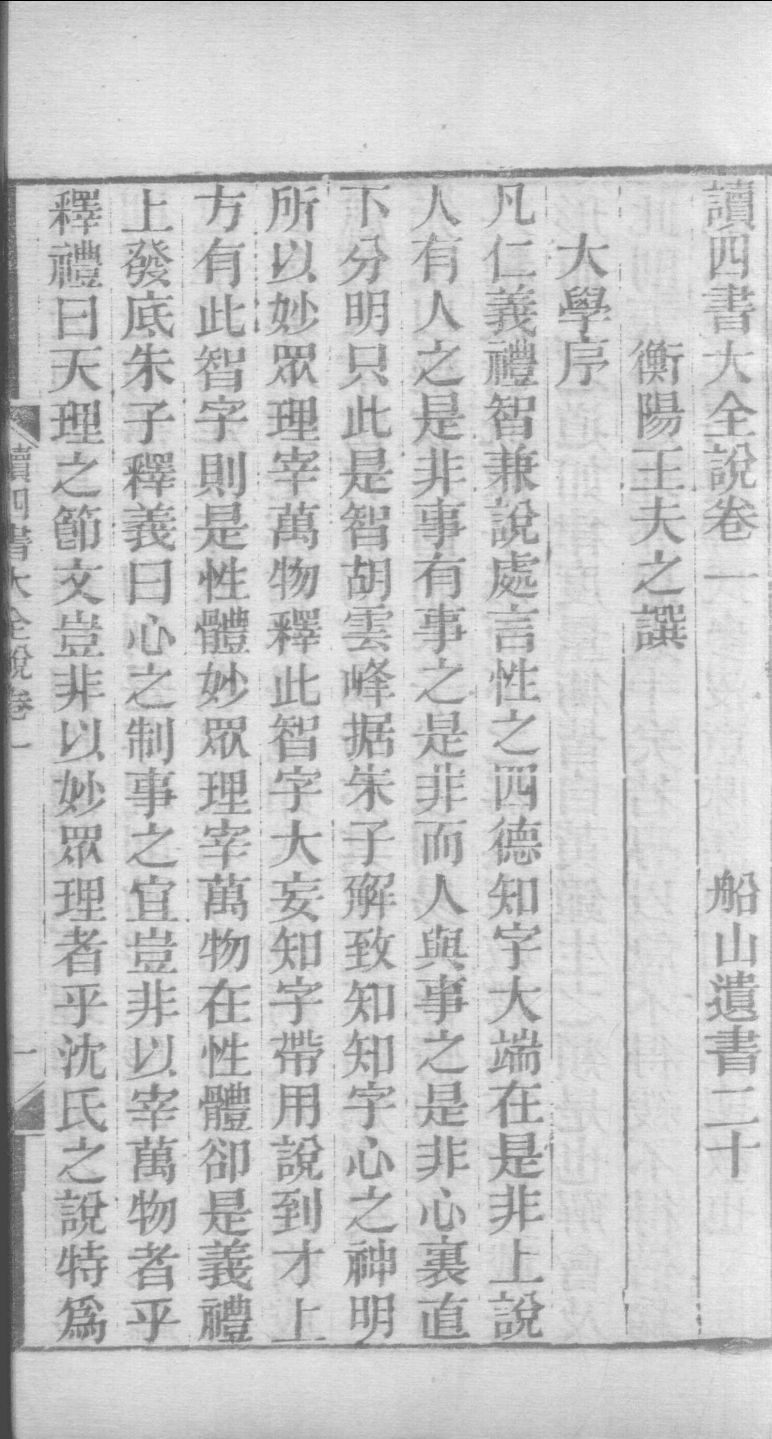 讀四書大全說卷一　船山遺書二十
衡陽王夫之譔
大學序
凡仁義禮智兼說處言性之四德知字大端在是非上說
人有人之是非事有事之是非而人與事之是非心裏直
下分明只此是智胡雲峰据朱子解致知知字心之神明
所以妙眾理宰萬物釋此智字大妄知字帶用說到才上
方有此智字則是性體妙眾理宰萬物在性體卻是義禮
上發底朱子釋義曰心之制事之宜豈非以宰萬物者乎
釋禮曰天理之節文豈非以妙眾理者乎沈氏之說特爲
讀四書大全說卷一　一